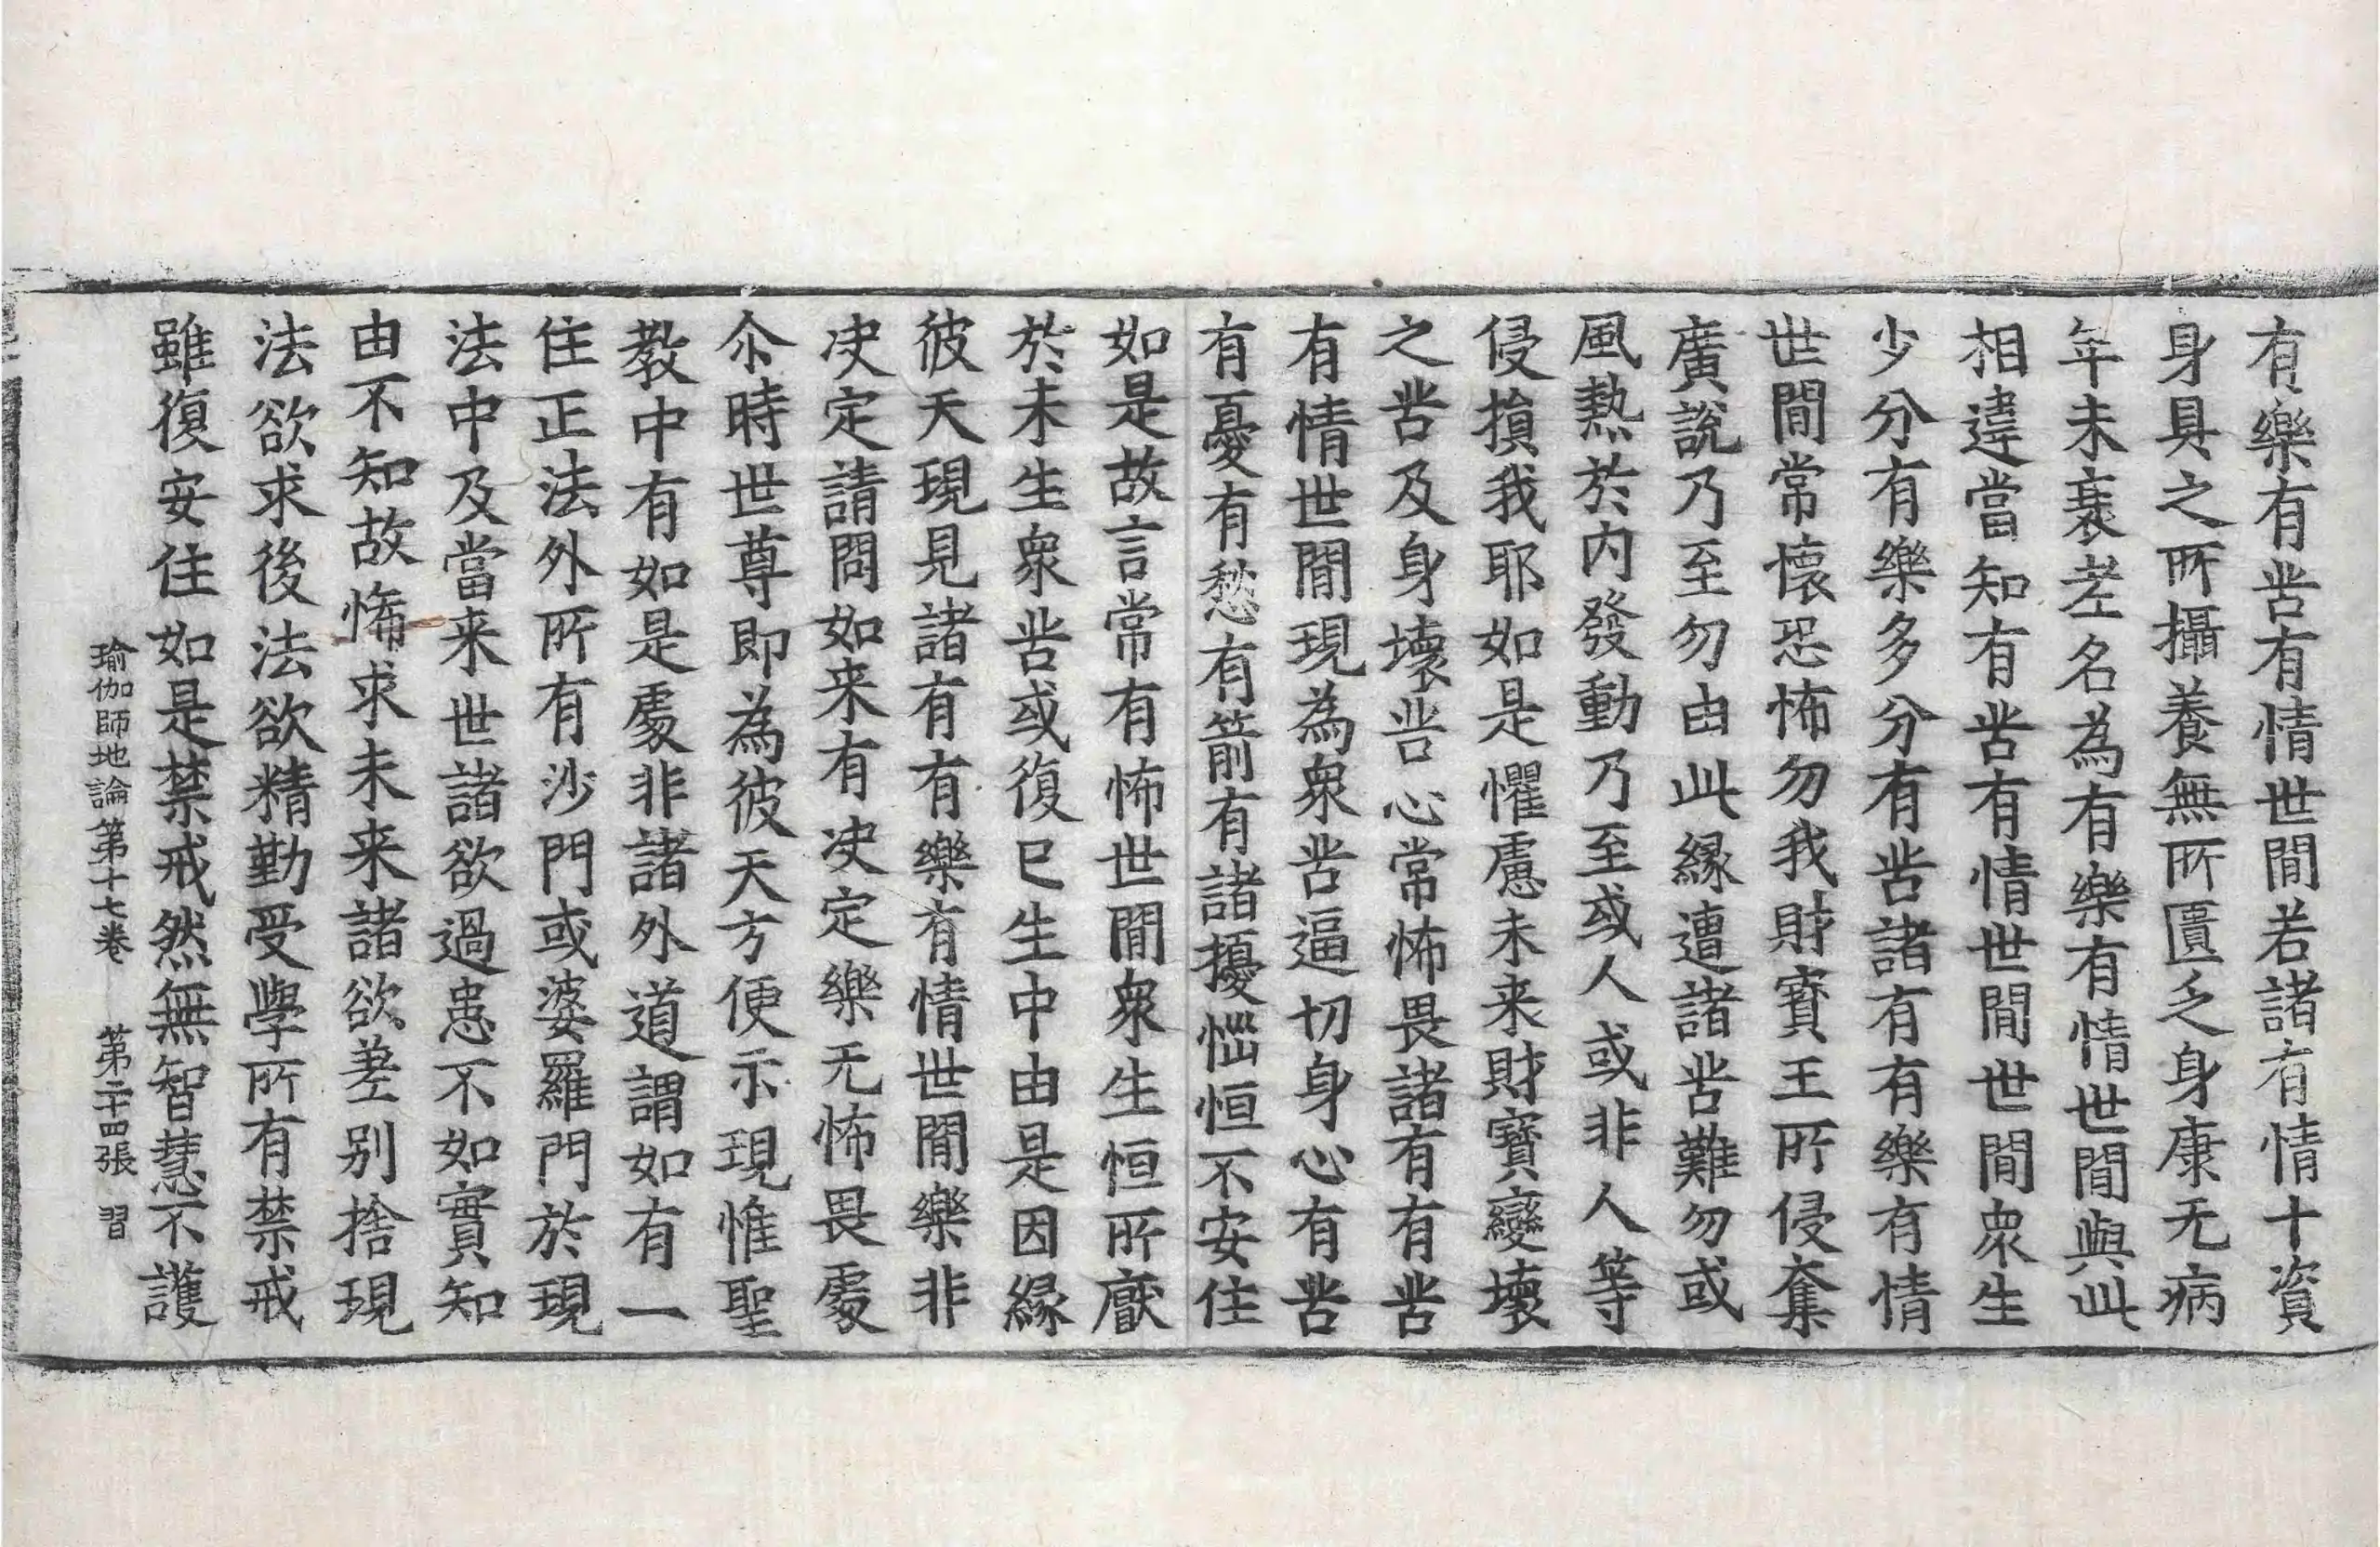 有樂有苦有情世間若諸有情十資
身具之所攝養無所匱乏身康无病
年未衰耄名為有樂有情世間與此
相違當知有苦有情世間世間衆生
少分有樂多分有苦諸有有樂有情
世間常懷恐怖勿我財寶王所侵奪
廣說乃至勿由此緣遭諸苦難勿或
風熱於內發動乃至或人或非人等
侵損我耶如是懼慮未来財寶變壞
之苦及身壞苦心常怖畏諸有有苦
有情世間現為衆苦逼切身心有苦
有憂有愁有箭有諸擾惱恒不安住
如是故言常有怖世間衆生恒所厭
於未生衆苦或復已生中由是因緣
彼天現見諸有有樂有情世間樂非
决定請問如来有决定樂无怖畏處
尒時世尊即為彼天方便示現惟聖
教中有如是處非諸外道謂如有一
住正法外所有沙門或婆羅門於現
法中及當来世諸欲過患不如實知
由不知故悕求未来諸欲差别捨現
法欲求後法欲精勤受學所有禁戒
雖復安住如是禁戒然無智慧不護
瑜伽師地論第十七卷　第二十四張　習